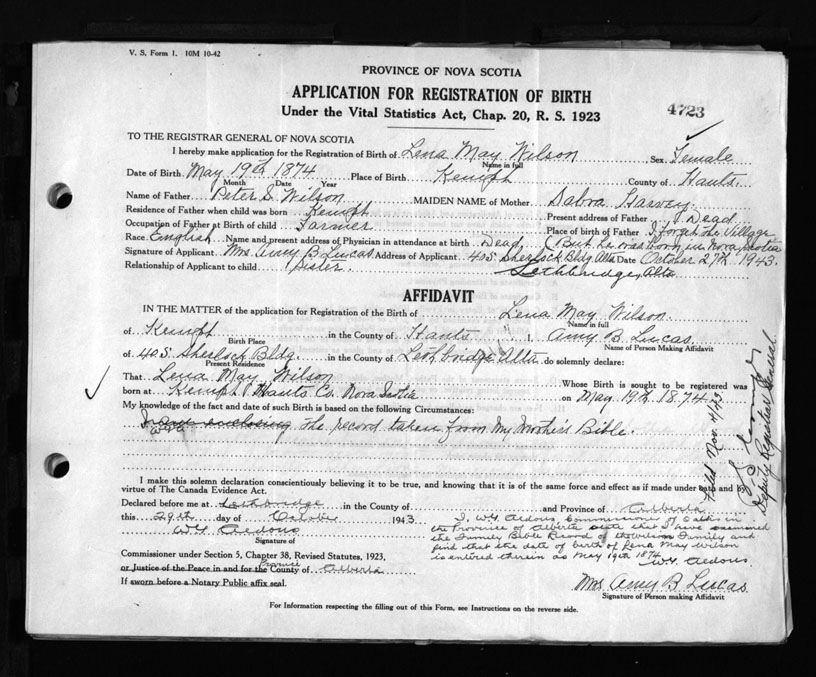 V. S. Form 1. 10M 10-42
PROVINCE OF NOVA SCOTIA
APPLICATION FOR REGISTRATION OF BIRTH
4723
Under the Vital Statistics Act, Chap. 20, R. S. 1923
TO THE REGISTRAR GENERAL OF NOVA SCOTIA
I hereby make application for the Registration of Birth of Lena May Wilson Sex Female
Name in full
Date of Birth May 19th 1874 Place of Birth Kempt County of Hants.
Month Date Year
Name of Father Peter S. Wilson MAIDEN NAME of Mother Sabra Harvey
Residence of Father when child was born Kempt Present address of Father Dead
Occupation of Father at Birth of child Farmer Place of birth of Father I forget the Village
Race English Name and present address of Physician in attendance at birth Dead, (But he was born in Nova Scotia
Signature of Applicant Mrs Amy B Lucas Address of Applicant 405 Sherlock Bldg. Alta Date October 27th 1943.
Relationship of Applicant to child Sister. Lethbridge, Alta
AFFIDAVIT
IN THE MATTER of the application for Registration of the Birth of Lena May Wilson
Name in full
of Kempt in the County of Hants I, Amy B Lucas
Birth Place Name of Person Making Affidavit
of 405 Sherlock Bldg. in the County of Lethbridge Alta do solemnly declare:
Present Residence
That Lena May Wilson Whose Birth is sought to be registered was
born at Kempt Hants Co. Nova Scotia on May 19th 1874
My knowledge of the fact and date of such Birth is based on the following Circumstances:
I am enclosing the record taken from my Mother's Bible.
I make this solemn declaration conscientiously believing it to be true, and knowing that it is of the same force and effect as if made under oath and by
virtue of The Canada Evidence Act.
Declared before me at Lethbridge in the County of and Province of Alberta
this 29th day of October 1943
Signature of
I, Commissioner of Oaths in
the Province of Alberta state that I have examined
the Family Bible Record of the Wilson Family and
find that the date of birth of Lena May Wilson
is entered therein as May 19th 1874
Commissioner under Section 5, Chapter 38, Revised Statutes, 1923,
Province
or Justice of the Peace in and for the County of Alberta
If sworn before a Notary Public affix seal.
Mrs Amy B Lucas
Signature of Person making Affidavit
For Information respecting the filling out of this Form, see Instructions on the reverse side.
Filed Nov. 4/43
Deputy Registrar General